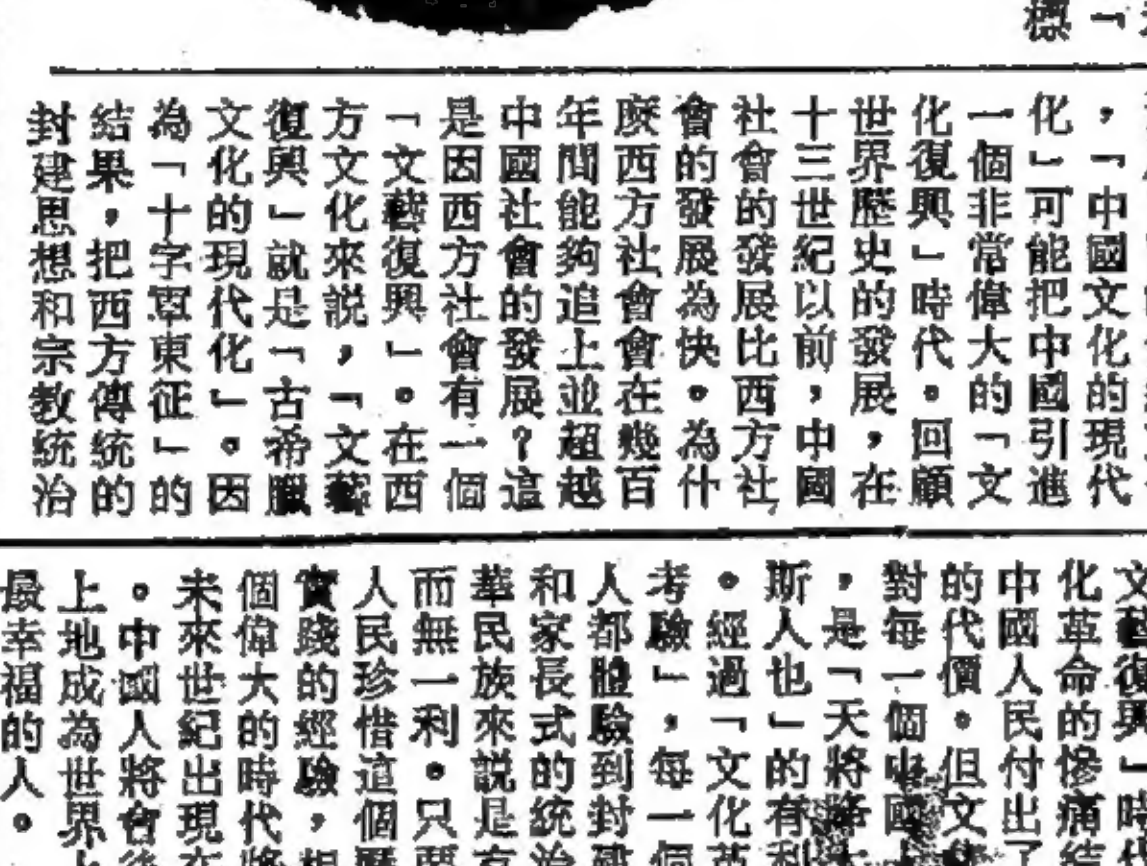 「
標
，「中國文化的現代
化」可能把中國引進
一個非常偉大的「文
化復興」時代。回顧
世界歷史的發展，在
十三世紀以前，中國
社會的發展比西方社
會的發展為快。為什
麼西方社會會在幾百
年間能夠追上並超越
中國社會的發展？這
是因西方社會有一個
「文藝復興」。在西
方文化來説，「文藝
復興」就是「古希臘
文化的現代化」。因
為「十字軍東征」的
結果，把西方傳統的
封建思想和宗教統治
文藝復興」時代
化革命的慘痛結
中國人民付出了
的代價。但文
對每一個中國
，是「天將降
斯人也」的有利
。經過「文化革
考驗」，每一個
人都體驗到封建
和家長式的統治
華民族來説是有
而無一利。只要
人民珍惜這個
實踐的經驗，
個偉大的時代將
未來世紀出現在
。中國人將會
上地成為世界上
最幸福的人。